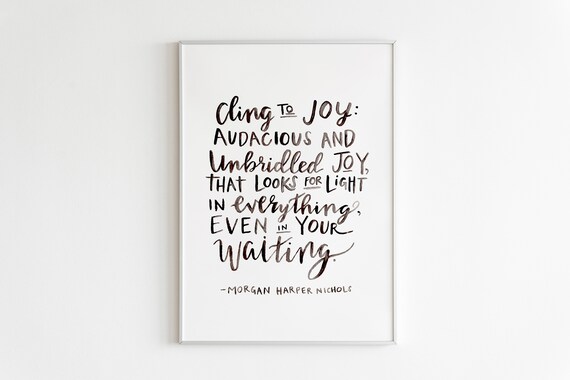 Cling TO JOY:
AUDACIOUS AND
Unbridled JOY,
THAT LOOKS FOR LIGHT
IN everything,
EVEN IN YOUR
Waiting.
-MORGAN HARPER NICHOLS